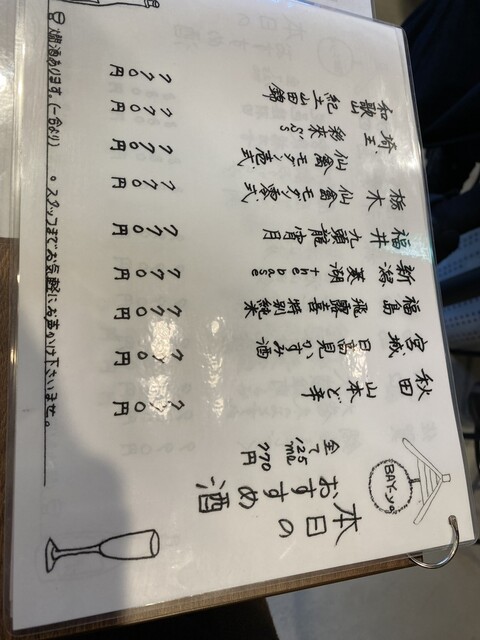 BAY-ya
本日の
おすすめ酒
全て
125ml
770円
秋田 山本 ど辛 770円
宮城 日高見 かすみ酒 770円
福島 飛露喜 特別純米 770円
新潟 菱湖 the base 770円
福井 九頭龍 宵月 770円
栃木 仙禽 モダン零式 770円
仙禽 モダン壱式 770円
埼玉 彩來 770円
和歌山 紀土 山田錦 770円
燗酒あります。(一合より) 。スタッフまでお気軽にお声かけ下さいませ。